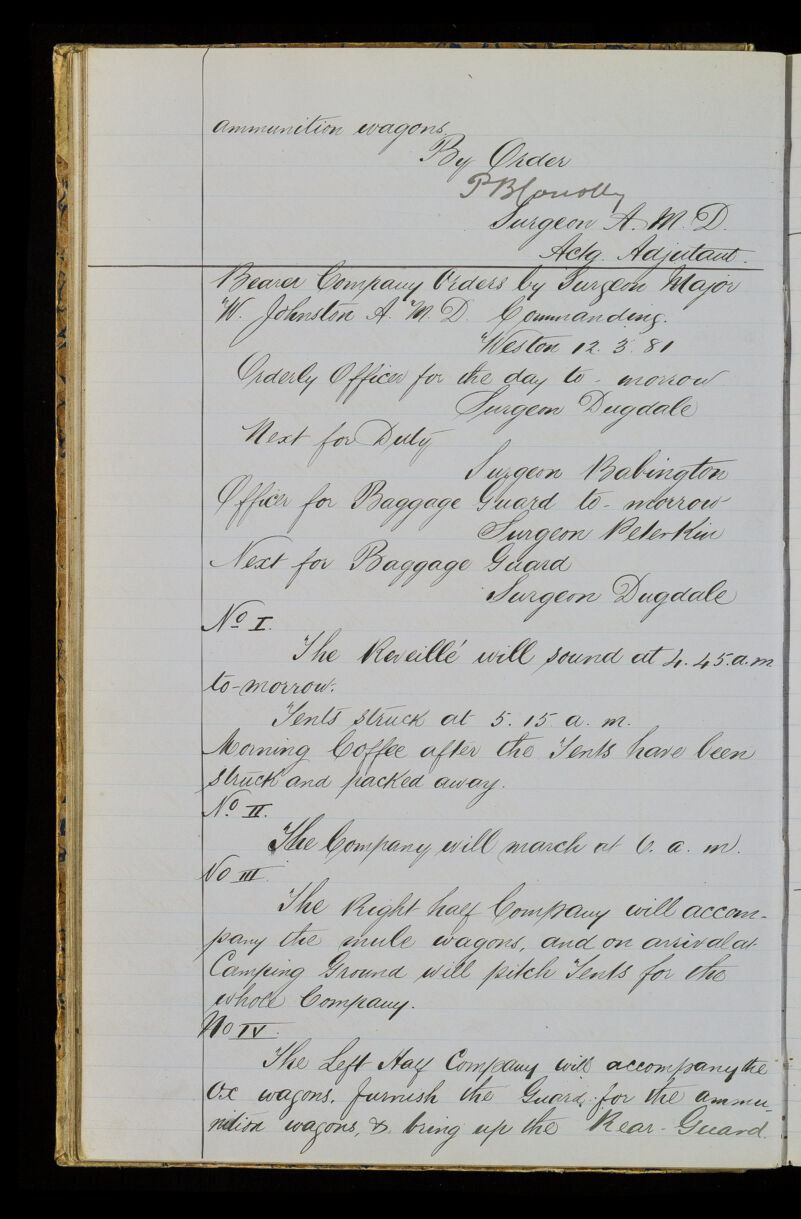 ammunition wagons.
By Order
P B Conolly
Surgeon A. M. D.
Actg. Adjutant.
Bearer Company Orders by Surgeon Major
W. Johnston A. M. D. Commanding.
Weston 12. 3. 81
Orderly Officer for the day to-morrow
Surgeon Dugdale
Next for Duty
Surgeon Babington
Officer for Baggage Guard to-morrow
Surgeon Peterkin
Next for Baggage Guard
Surgeon Dugdale
No I.
The Reveillé will sound at 4. 45. a.m
to-morrow.
Tents struck at 5. 15 a. m.
Morning Coffee after the Tents have been
struck and packed away.
No II.
The Company will march at 6. a. m.
No III.
The Right half Company will accom-
pany the mule wagons, and on arrival at
Camping Ground will pitch Tents for the
whole Company.
No IV.
The Left Half Company will accompany the
Ox wagons. furnish the Guard for the ammu-
nition wagons, & bring up the Rear-Guard.